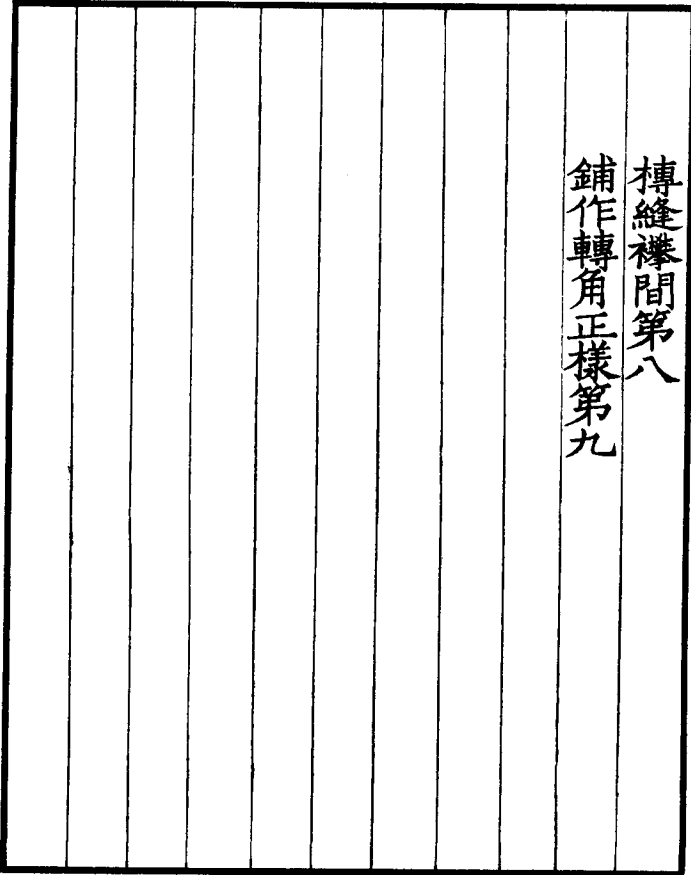 槫縫襻間第八
鋪作轉角正樣第九